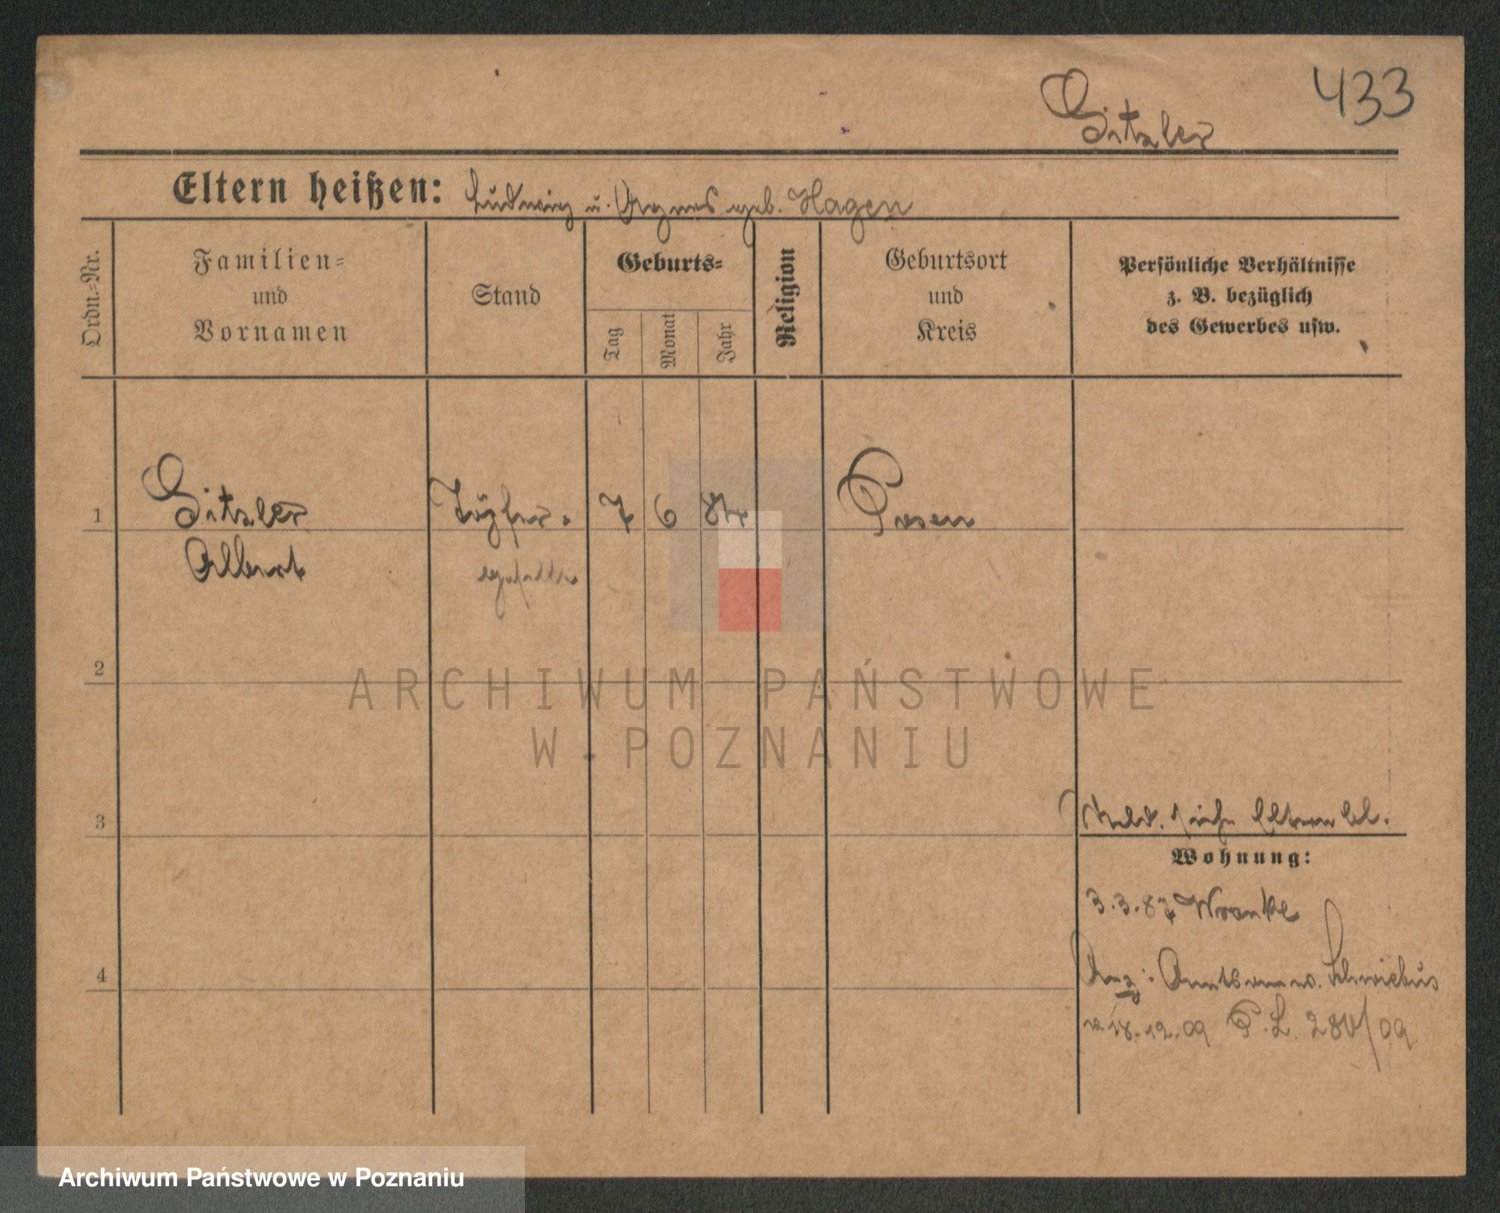 433
Sitzler
Eltern heißen: Ludwig u. Agnes geb. Hagen
Ordn.-Nr.
Familien-
und
Vornamen
Stand
Geburts-
Tag
Monat
Jahr
Religion
Geburtsort
und
Kreis
Persönliche Verhältnisse
z. B. bezüglich
des Gewerbes usw.
1
Sitzler
Albert
Töpfer-
geselle
7
6
Posen
2
3
4
Meld. siehe Elternbl.
Wohnung:
3.3.87 Wronke
Anz: Amtsanw. Schwiebus
v. 18.12.09 P.L. 280/09
ARCHIWUM PAŃSTWOWE
W POZNANIU
Archiwum Państwowe w Poznaniu